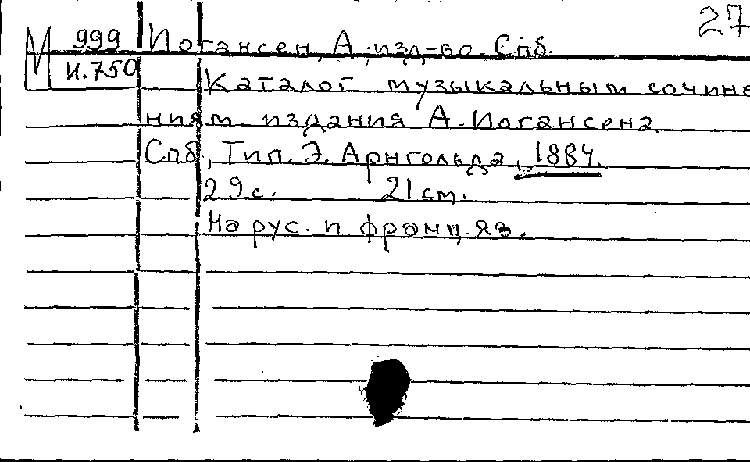 27
М 999 Иогансен, А., изд-во. Спб.
И.750
Каталог музыкальным сочине
ниям издания А. Иогансена.
Спб., Тип. Э. Арнгольда, 1884.
29 с. 21 см.
На рус. и франц. яз.